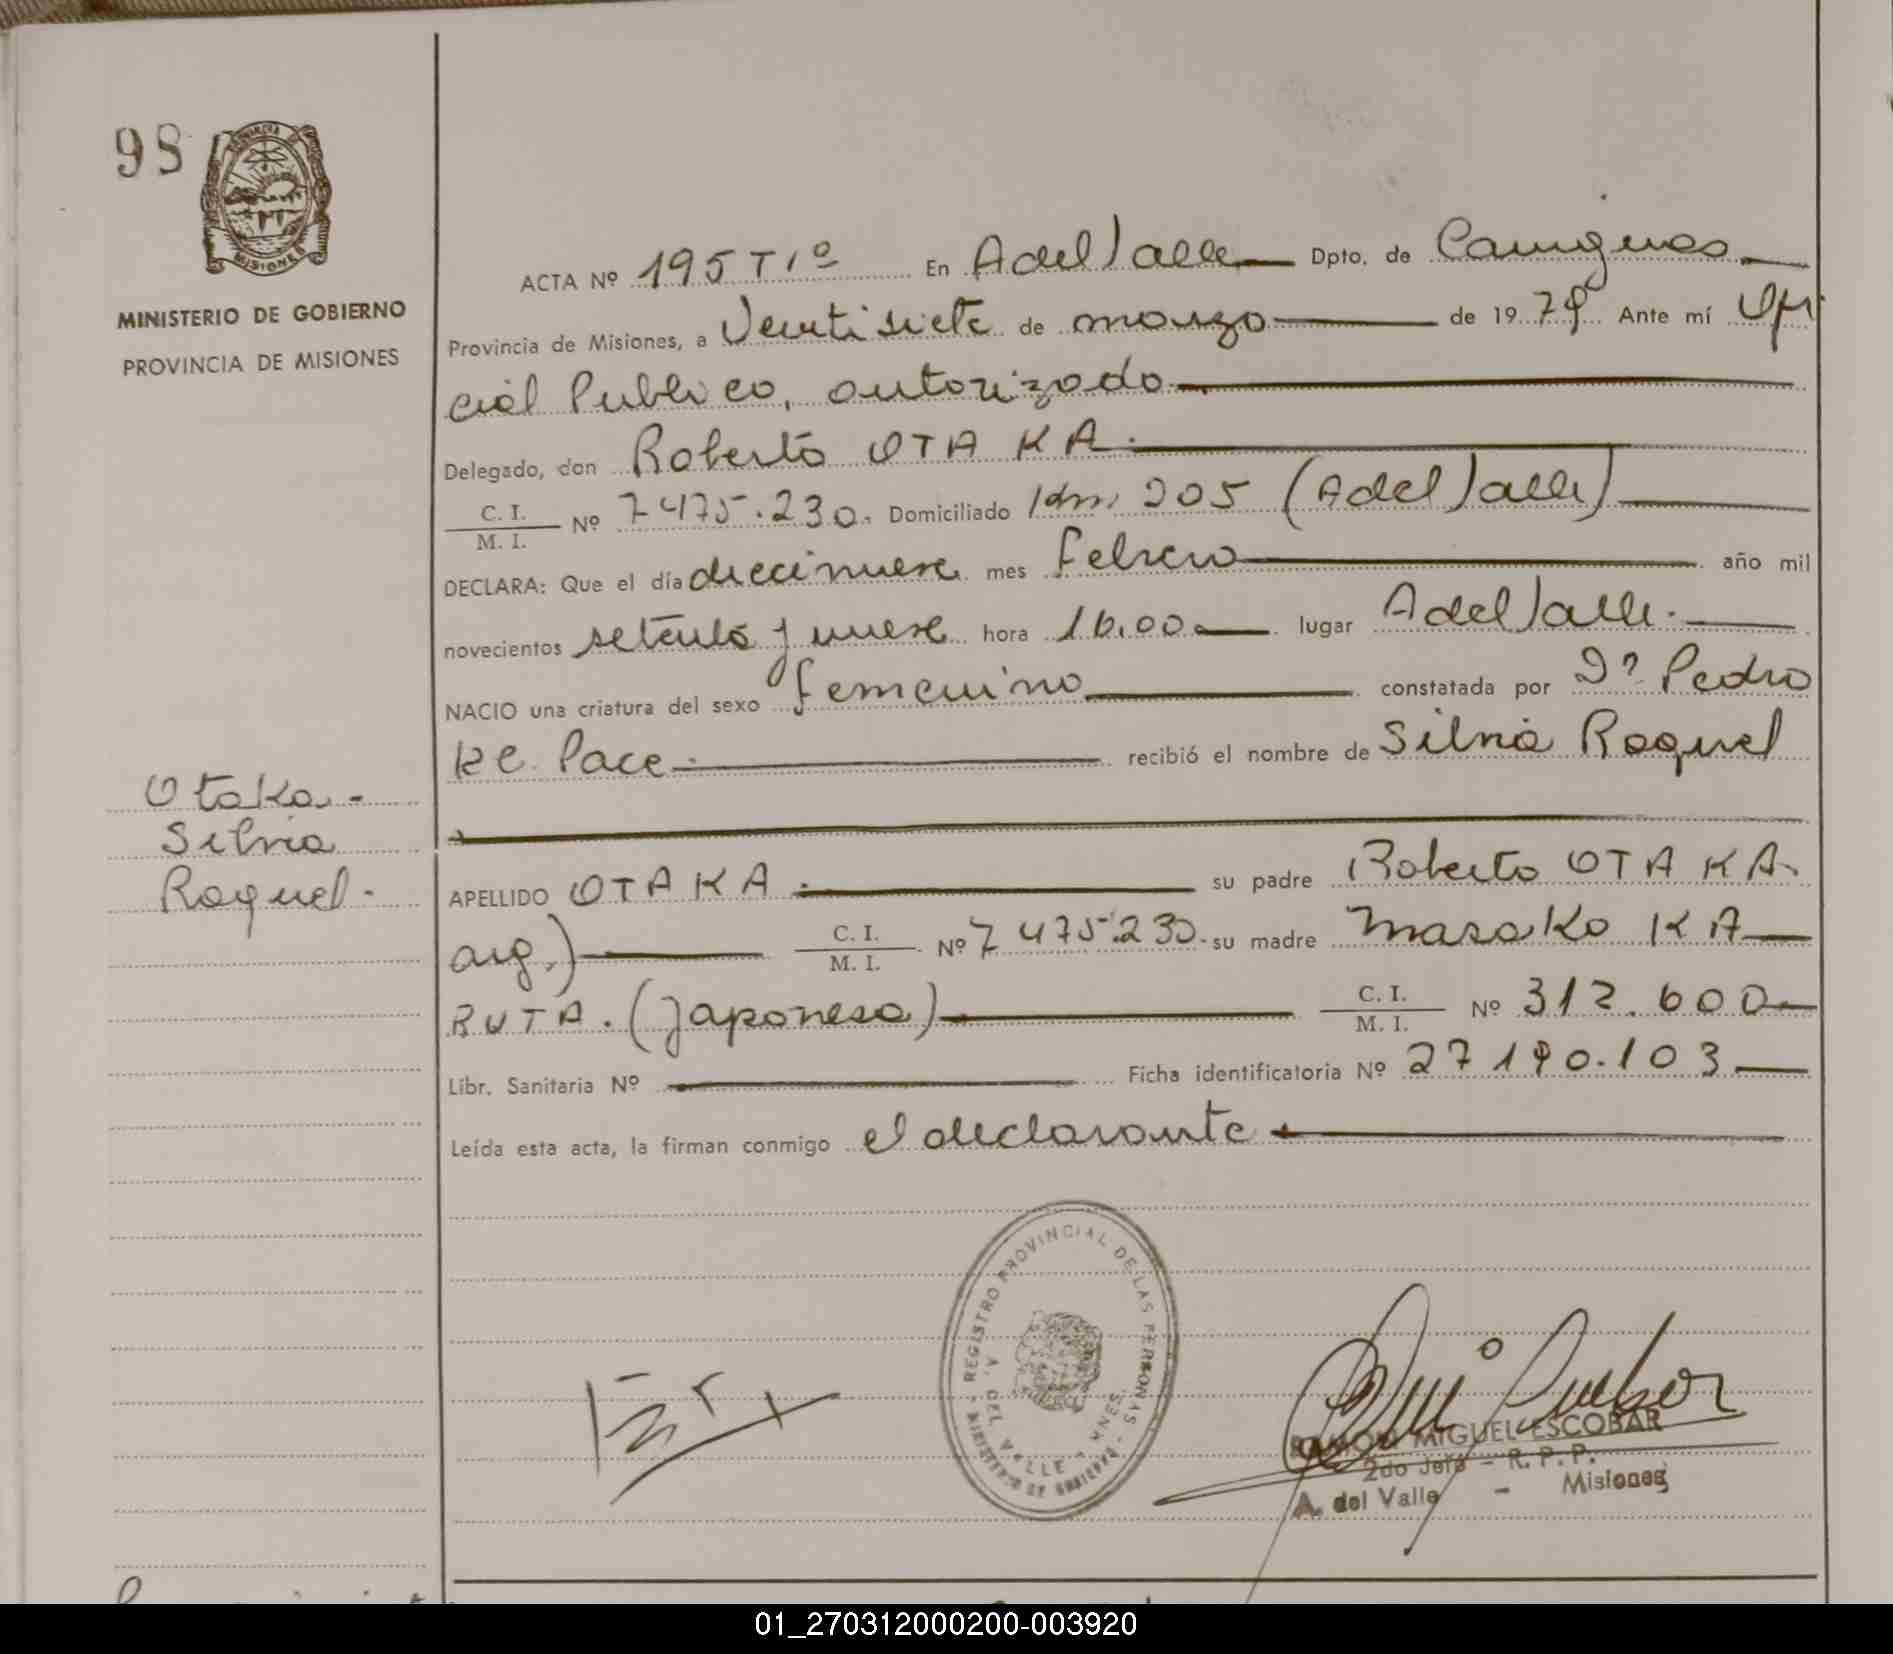 98
MINISTERIO DE GOBIERNO
PROVINCIA DE MISIONES
ACTA Nº 195 T1º En A del Valle Dpto. de Cainguas
Provincia de Misiones, a Veintisiete de marzo de 1979 Ante mí Ofi
cial Publico, autorizado
Delegado, don Roberto OTAKA.
C. I. / M. I. Nº 7475.230. Domiciliado Km, 205 (A del Valle)
DECLARA: Que el día diecinueve mes febrero año mil
novecientos setenta y nueve hora 16.00 lugar A del Valle.
NACIO una criatura del sexo femenino constatada por Pedro
Pace recibió el nombre de Silvia Raquel
Otaka.
Silvia
Raquel.
APELLIDO OTAKA su padre Roberto OTAKA.
arg.) C. I. / M. I. Nº 7475.230. su madre Masako KA
BUTA. (japonesa) C. I. / M. I. Nº 312.600
Libr. Sanitaria Nº Ficha identificatoria Nº 27190.103
Leída esta acta, la firman conmigo el declarante
REGISTRO PROVINCIAL DE LAS PERSONAS
A. DEL VALLE MNES.
MINISTERIO DE GOBIERNO
RAMON MIGUEL ESCOBAR
2do Jefe - R. P. P.
A. del Valle - Misiones
01_270312000200-003920